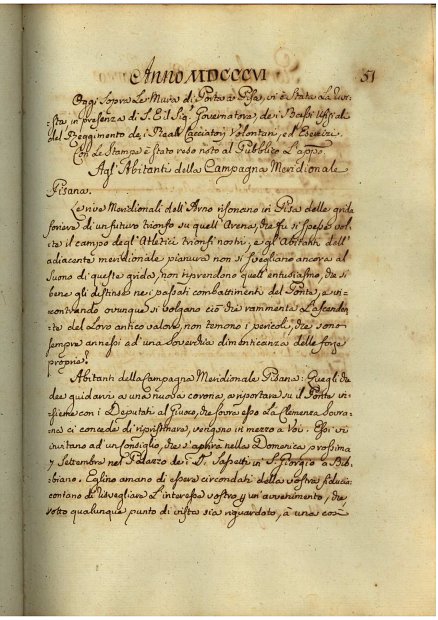 Anno MDCCCVI
51
Oggi sopra Le Mura di Porta a Pisa, vi è stata La
in presenza di S. E. il Sig. Governatore, dei Bassi Uffiziali
del Reggimento dei Reali Cacciatori Volontari, ed Esercizi.
Con Le Stampe è stato reso noto al Pubblico L'appo.
Agl'Abitanti della Campagna Meridionale
Pisana.
Le rive Meridionali dell'Arno risonano in Pisa delle grida
foriere di un futuro trionfo su quell'Arena, che fu sì spesse vol-
te il campo degl'Atletici trionfi nostri, e gl'Abitanti dell'
adiacente meridionale pianura non si svegliano ancora al
suono di queste grida, non riprendono quell'entusiasmo, che sì
bene gli distinse nei passati combattimenti del Ponte, e in-
contrando ovunque si volgano ciò che rammenta L'ascenden-
te del Loro antico valore, non temono i pericoli, che sono
sempre annessi ad una soverchia dimenticanza delle forze
proprie?
Abitanti della Campagna Meridionale Pisana: Quegli che
dee guidarvi a una nuova corona, a riportare su il Ponte in-
sieme con i Deputati al Giuoco, che sovra esso La Clemenza Sovra-
na ci concede di ripristinare, vengono in mezzo a Voi. Essi vi
invitano ad un Consiglio, che s'aprirà nella Domenica prossima
7 Settembre nel Palazzo dei SS. Sassetti in S. Giorgio a Bib-
biano. Eglino amano di essere circondati della vostra fiducia:
contano di risvegliare L'interesse vostro per un avvenimento, che
sotto qualunque punto di vista sia riguardato, à una così